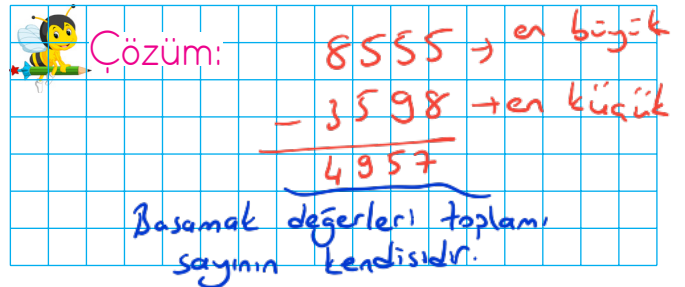 Çözüm:
8555 → en büyük
- 3598 → en küçük
4957
Basamak değerleri toplamı
sayının kendisidir.